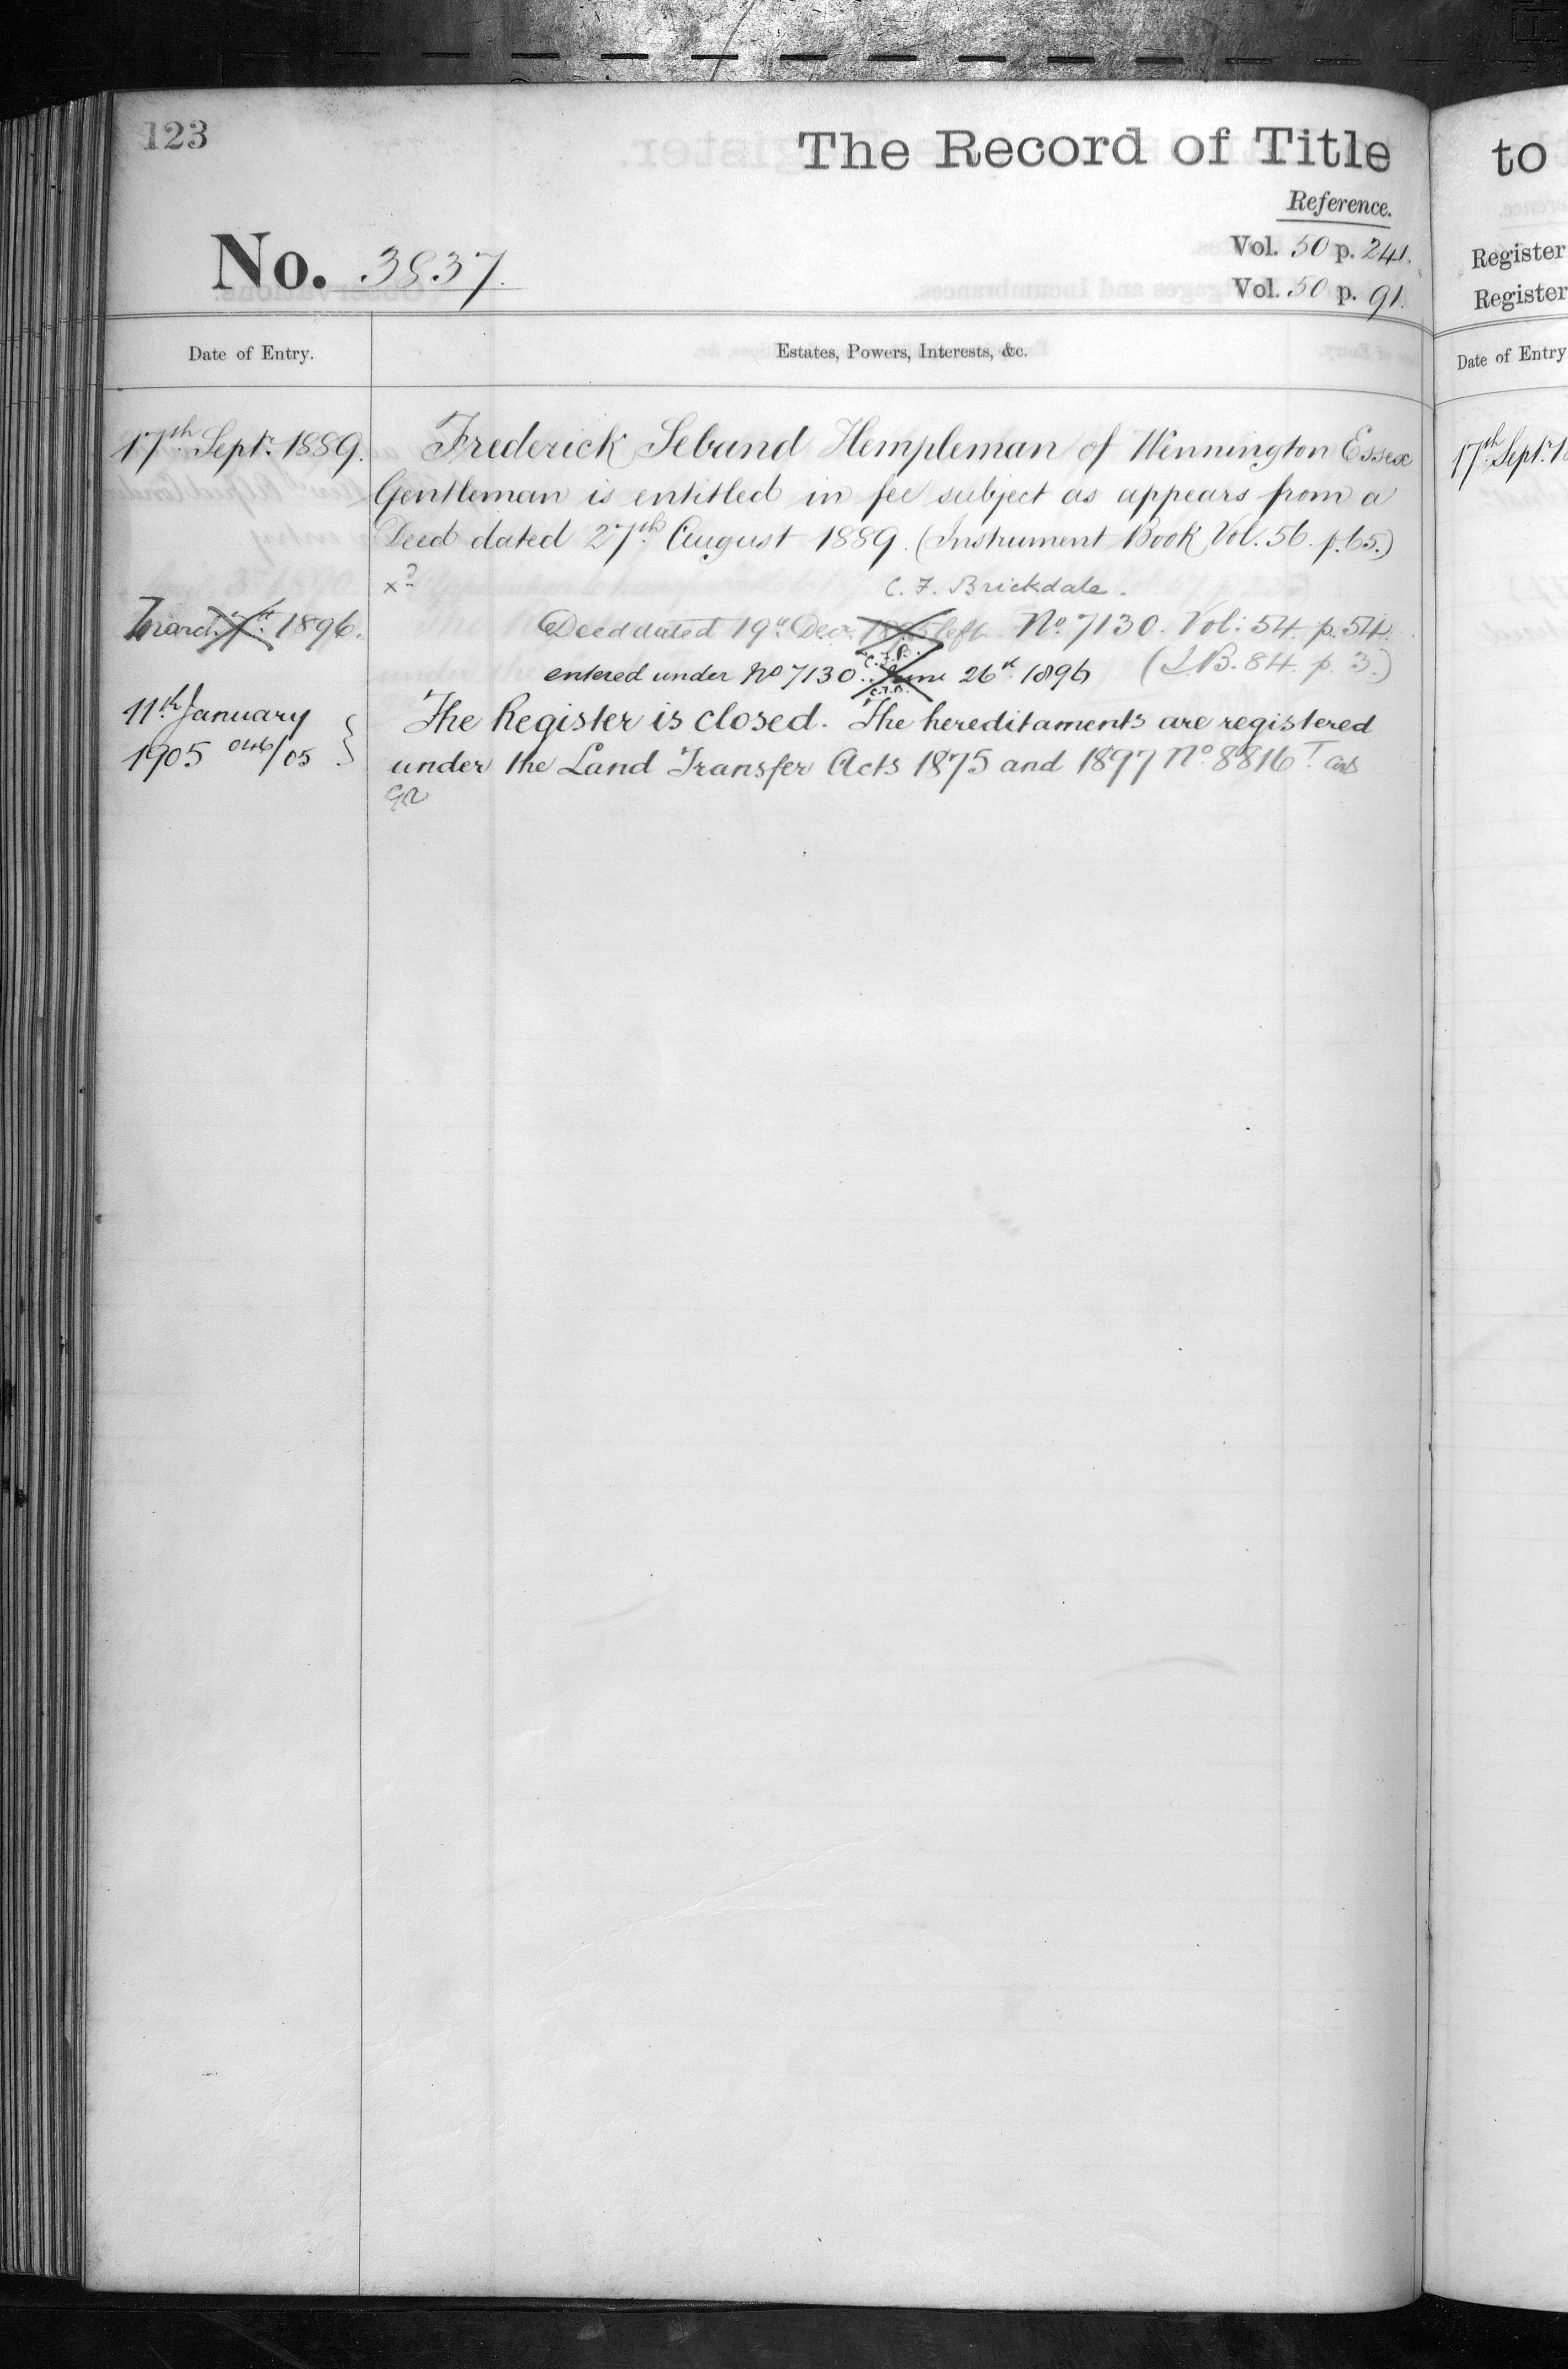 123
The Record of Title
Reference.
No. 3837.
Vol. 50 p. 241.
Vol. 50 p. 91.
Date of Entry.
Estates, Powers, Interests, &c.
17th Septr. 1889.
Frederick Seband Hempleman of Wennington Essex
Gentleman is entitled in fee subject as appears from a
Deed dated 27th August 1889. (Instrument Book Vol. 56. p. 65.)
x?
C. F. Brickdale.
March 1896.
Deed dated 19th Decr. 1895 left No. 7130. Vol: 54. p. 54.
entered under No 7130. June 26th 1896 (I.B. 84. p. 3.)
C.F.B.
C.F.B.
11th January
1905 046/05
The Register is closed. The hereditaments are registered
under the Land Transfer Acts 1875 and 1897 No. 8816
to
Register
Register
Date of Entry
17th Septr. 1